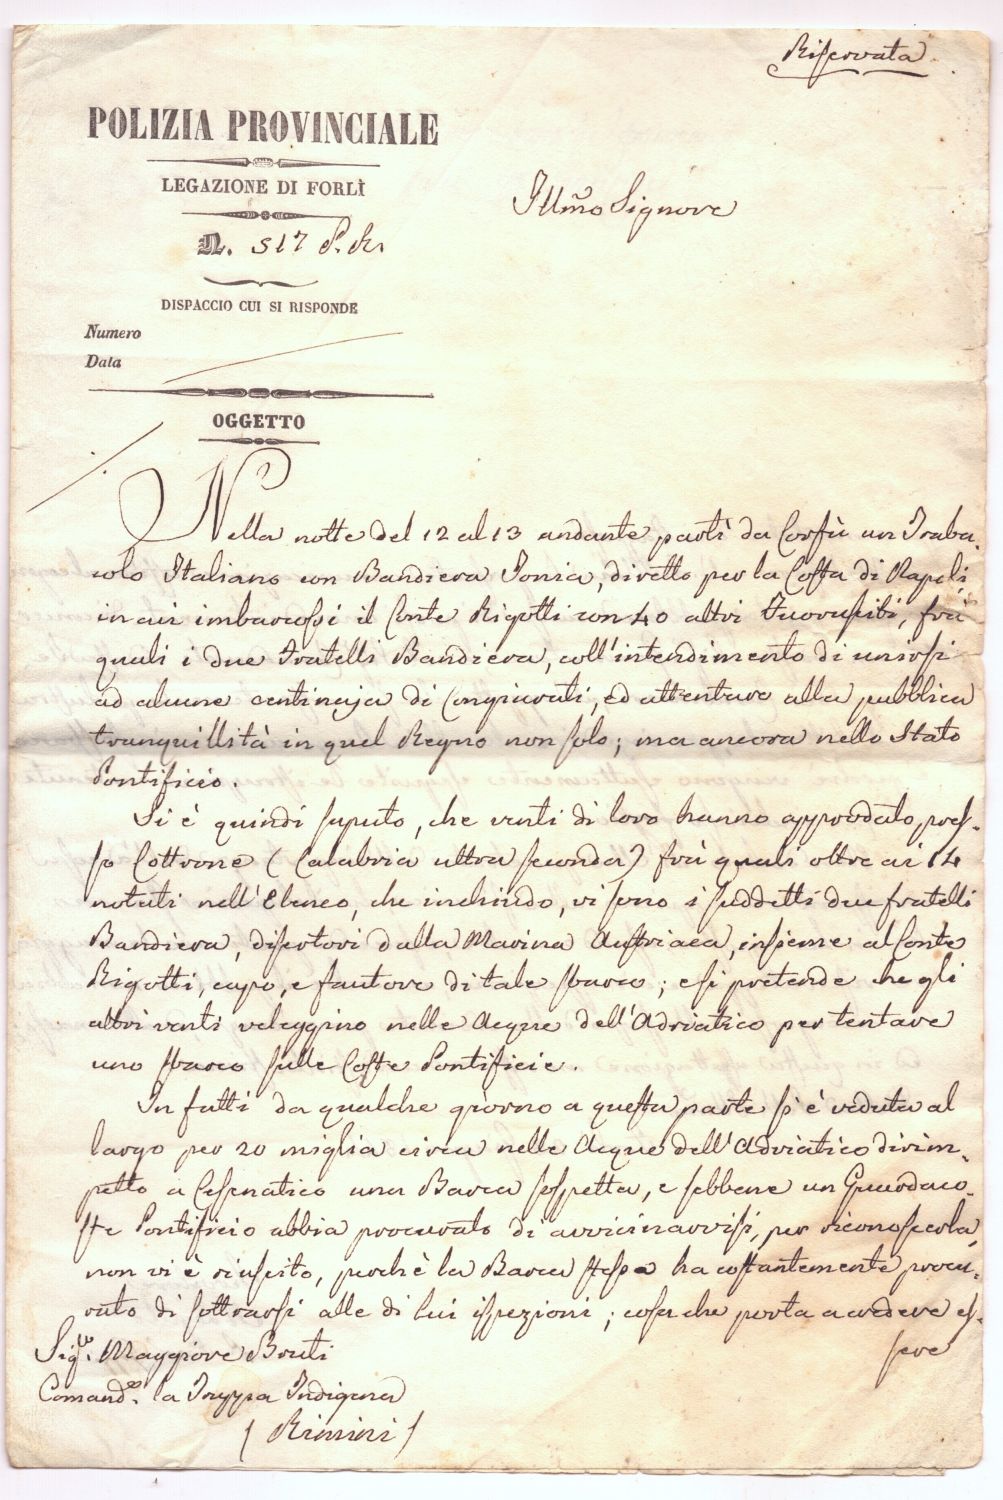 Riservata
POLIZIA PROVINCIALE
LEGAZIONE DI FORLÌ
N. 317 P. R.
DISPACCIO CUI SI RISPONDE
Numero
Data
OGGETTO
Illmo Signore
Nella notte del 12 al 13 andante partì da Corfù un Traba-
colo Italiano con Bandiera Jonia, diretto per la Costa di Napoli,
in cui imbarcossi il Conte Rigotti con 40 altri Fuorusciti, fra
quali i due Fratelli Bandiera, coll'intendimento di unirsi
ad alcune centinaja di Congiurati, ed attentare alla pubblica
tranquillità in quel Regno non solo; ma ancora nello Stato
Pontificio.
Si è quindi saputo, che venti di loro hanno approdato pres-
so Cottrone (Calabria ultra seconda) fra quali oltre ai 14
notati nell'Elenco, che inchiudo, vi sono i suddetti due fratelli
Bandiera, disertori dalla Marina Austriaca, insieme al Conte
Rigotti, capo, e fautore di tale sbarco; e si pretende che gli
altri venti veleggino nelle Acque dell'Adriatico per tentare
uno sbarco sulle Coste Pontificie.
In fatti da qualche giorno a questa parte si è veduta al
largo per 20 miglia circa nelle Acque dell'Adriatico dirim-
petto a Cesenatico una Barca sospetta, e sebbene un Guardaco-
ste Pontificio abbia procurato di avvicinarvisi, per riconoscerla,
non vi è riuscito, perchè la Barca stessa ha costantemente procu-
rato di sottrarsi alle di lui ispezioni; cosa che porta a credere es-
sere
Sigr. Maggiore Bruti
Comande. la Truppa Indigena
(Rimini)